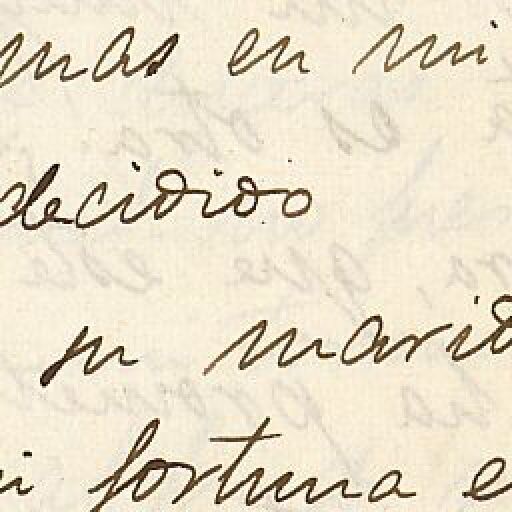 mas en mi
decidido
su marid
i fortuna e